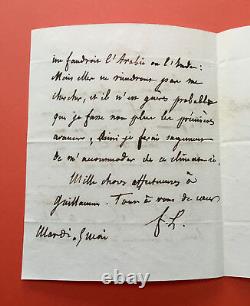 me faudroit l'Arabie ou l'Inde:
Mais elles ne viendront pas me
chercher, et il n'est guères probable
que je fasse non plus les premières
avances, Ainsi je ferais sagement
de m'accommoder de ce climat-ci
Mille choses affectueuses à
Guillaume. Tout à vous de cœur
F. L.
Mardi, 5 Mai